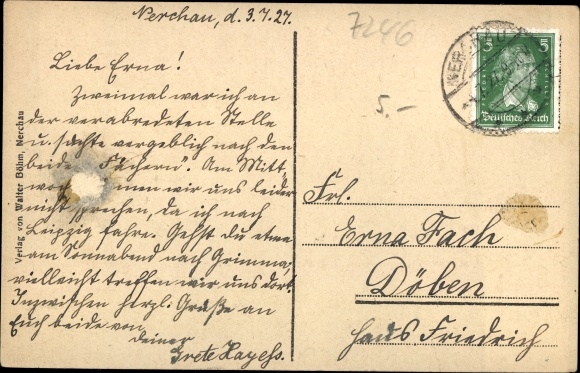 Nerchau, d. 3.7.27.
7246
5.-
Liebe Erna!
Zweimal war ich an
der verabredeten Stelle
u. suchte vergeblich nach den
beiden Fächern. Am Mitt-
woch können wir uns leider
nicht sprechen, da ich nach
Leipzig fahre. Gehst du etwa
am Sonnabend nach Grimma,
vielleicht treffen wir uns dort.
Inzwischen herzl. Grüße an
Euch beide von
deiner
Grete
Frl.
Erna Fach
Döben
Haus Friedrich
NERCHAU
5 5
Deutsches Reich
Verlag von Walter Böhm, Nerchau